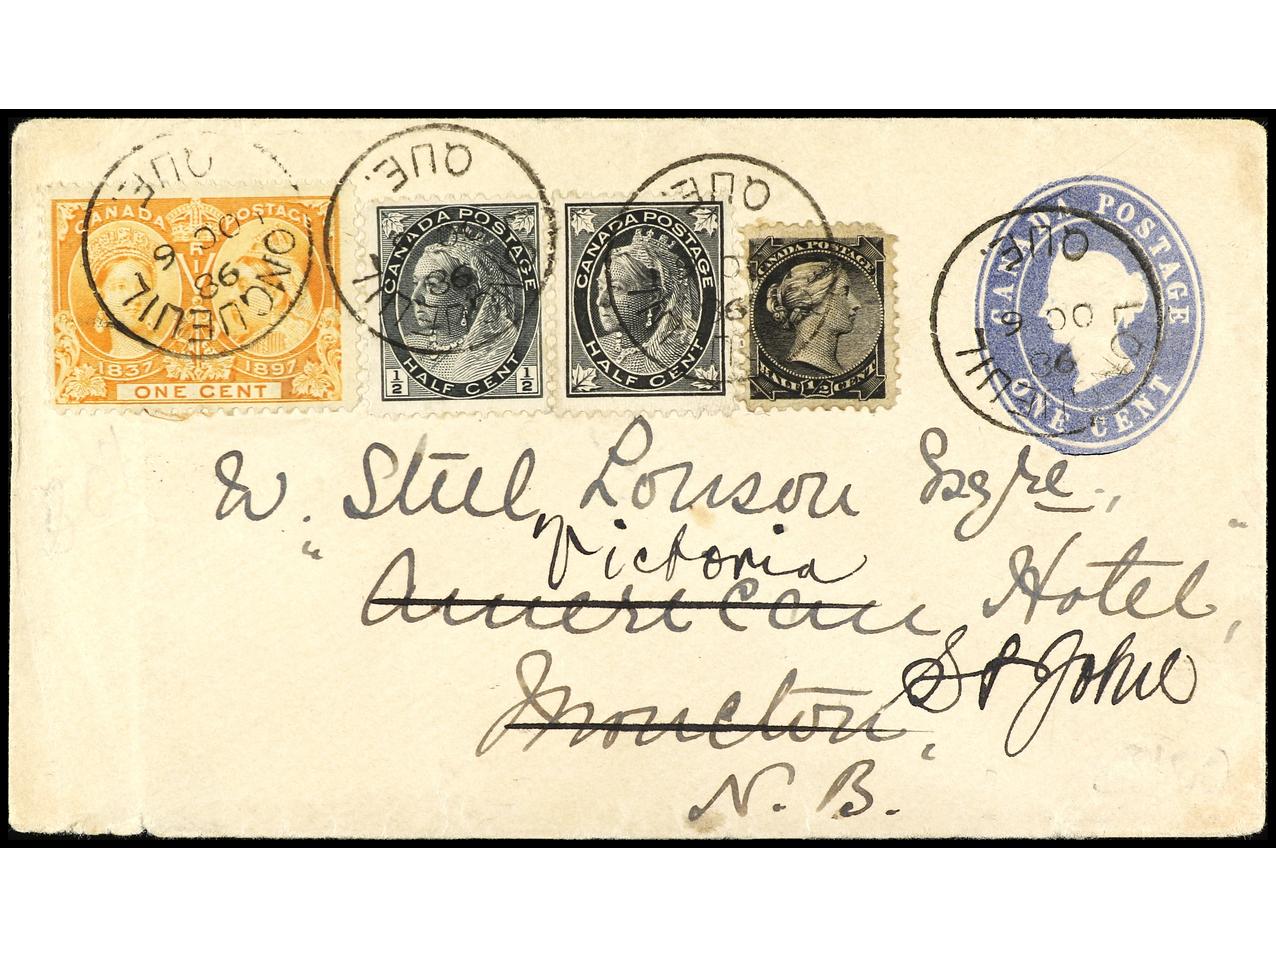 CANADA POSTAGE
1837 1897
ONE CENT
CANADA POSTAGE
1/2 HALF CENT 1/2
CANADA POSTAGE
HALF CENT
CANADA POSTAGE
HALF 1/2 CENT
CANADA POSTAGE
ONE CENT
LONGUEUIL QUE.
OC 6
98
QUE.
98
QUE.
QUE.
OC 6
W. Steel Lonson Esqre.,
Victoria
" American Hotel, "
Moncton, St John
N. B.